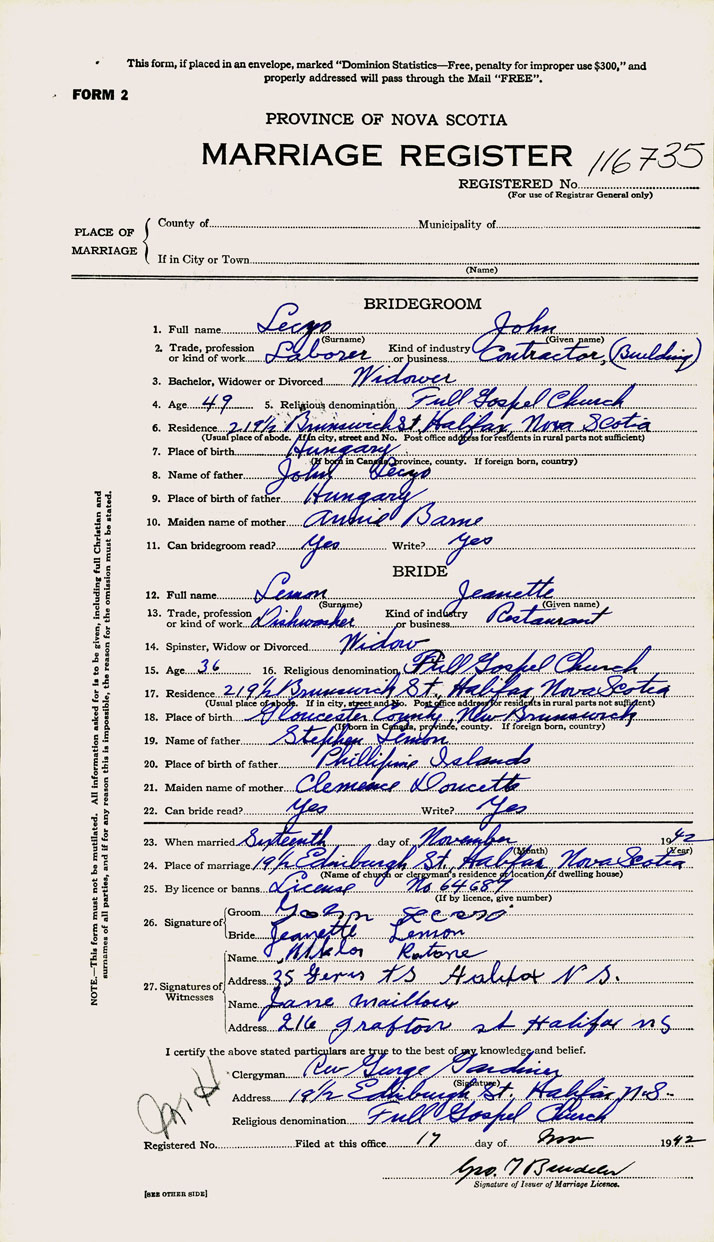 This form, if placed in an envelope, marked "Dominion Statistics—Free, penalty for improper use $300," and
properly addressed will pass through the Mail "FREE".
FORM 2
PROVINCE OF NOVA SCOTIA
MARRIAGE REGISTER 116735
REGISTERED No.
(For use of Registrar General only)
PLACE OF MARRIAGE
County of Municipality of
If in City or Town
(Name)
BRIDEGROOM
1. Full name Leczo John
(Surname) (Given name)
2. Trade, profession or kind of work Laborer Kind of industry or business Contractor, (Building)
3. Bachelor, Widower or Divorced Widower
4. Age 49 5. Religious denomination Full Gospel Church
6. Residence 219½ Brunswick St, Halifax, Nova Scotia
(Usual place of abode. If in city, street and No. Post office address for residents in rural parts not sufficient)
7. Place of birth Hungary
(If born in Canada, province, county. If foreign born, country)
8. Name of father John Leczo
9. Place of birth of father Hungary
10. Maiden name of mother Annie Barne
11. Can bridegroom read? Yes Write? Yes
BRIDE
12. Full name Lemon Jeanette
(Surname) (Given name)
13. Trade, profession or kind of work Dishwasher Kind of industry or business Restaurant
14. Spinster, Widow or Divorced Widow
15. Age 36 16. Religious denomination Full Gospel Church
17. Residence 219½ Brunswick St., Halifax Nova Scotia
(Usual place of abode. If in city, street and No. Post office address for residents in rural parts not sufficient)
18. Place of birth Gloucester County, New Brunswick
(If born in Canada, province, county. If foreign born, country)
19. Name of father Stephen Lemon
20. Place of birth of father Phillipine Islands
21. Maiden name of mother Clemence Doucette
22. Can bride read? Yes Write? Yes
23. When married Sixteenth day of November 1942
(Month) (Year)
24. Place of marriage 19½ Edinburgh St., Halifax Nova Scotia
(Name of church or clergyman's residence or location of dwelling house)
25. By licence or banns License No 64687
(If by licence, give number)
26. Signature of
Groom John
Bride Jeanette Lemon
27. Signatures of Witnesses
Name Miklos
Address 35 Halifax N S.
Name Jane Maillow
Address 216 Grafton st Halifax NS
I certify the above stated particulars are true to the best of my knowledge and belief.
Clergyman Rev George Gardiner
(Signature)
Address 19½ Edinburgh St., Halifax N.S.
Religious denomination Full Gospel Church
Registered No. Filed at this office 17 day of Nov 1942
Geo. T
Signature of Issuer of Marriage Licence.
[SEE OTHER SIDE]
NOTE.—This form must not be mutilated. All information asked for is to be given, including full Christian and
surnames of all parties, and if for any reason this is impossible, the reason for the omission must be stated.